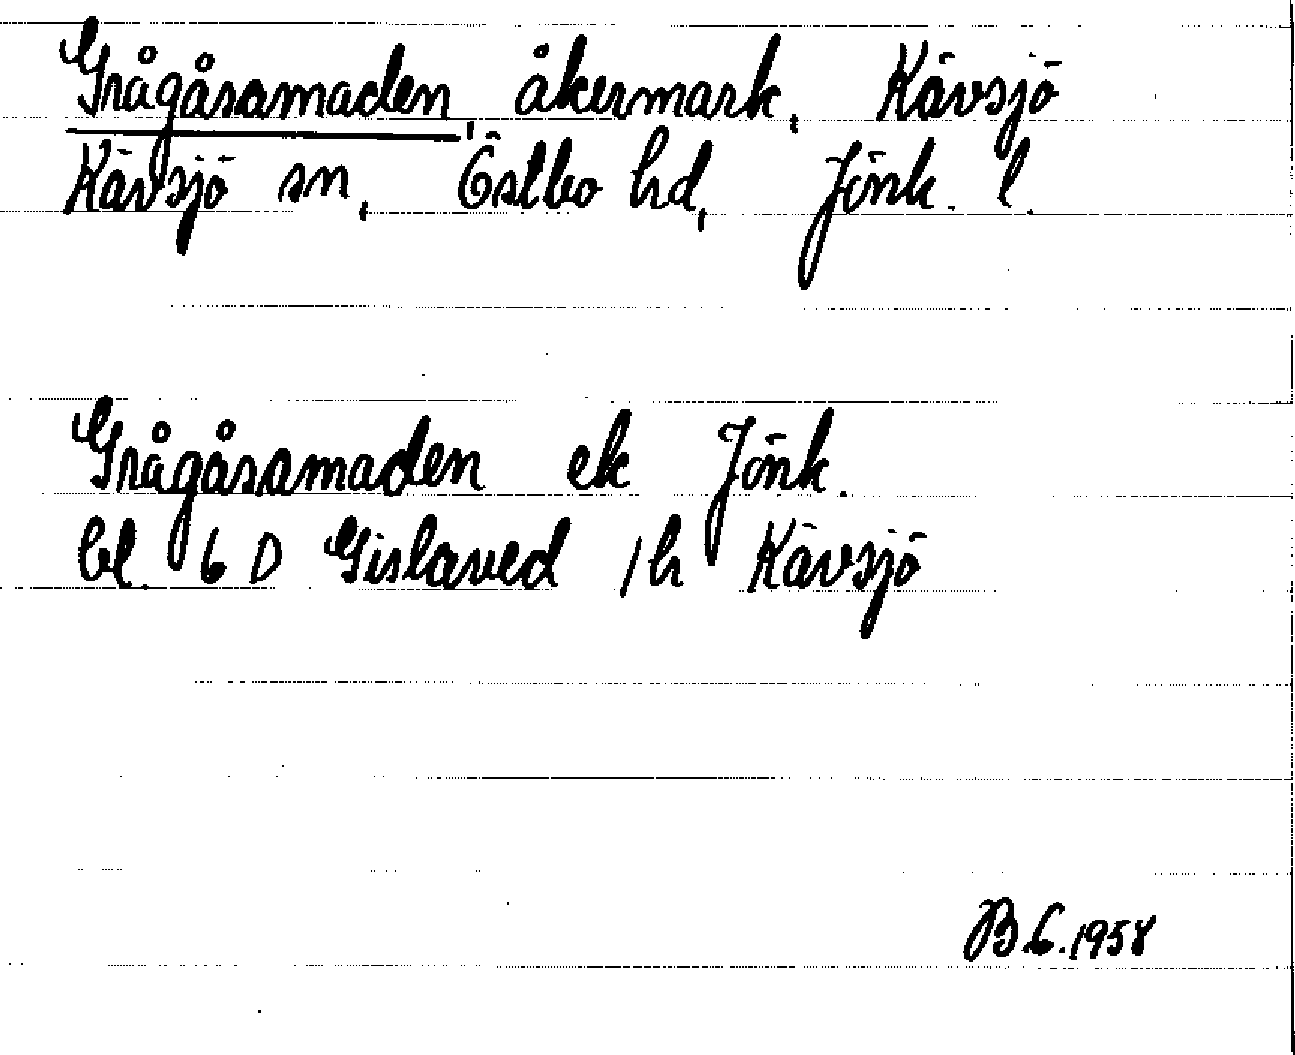 Grågåsamaden, åkermark, Kävsjö
Kävsjö sn, Östbo hd, Jönk. l.
Grågåsamaden ek Jönk.
bl. 6 D Gislaved /h Kävsjö
B.E.1958